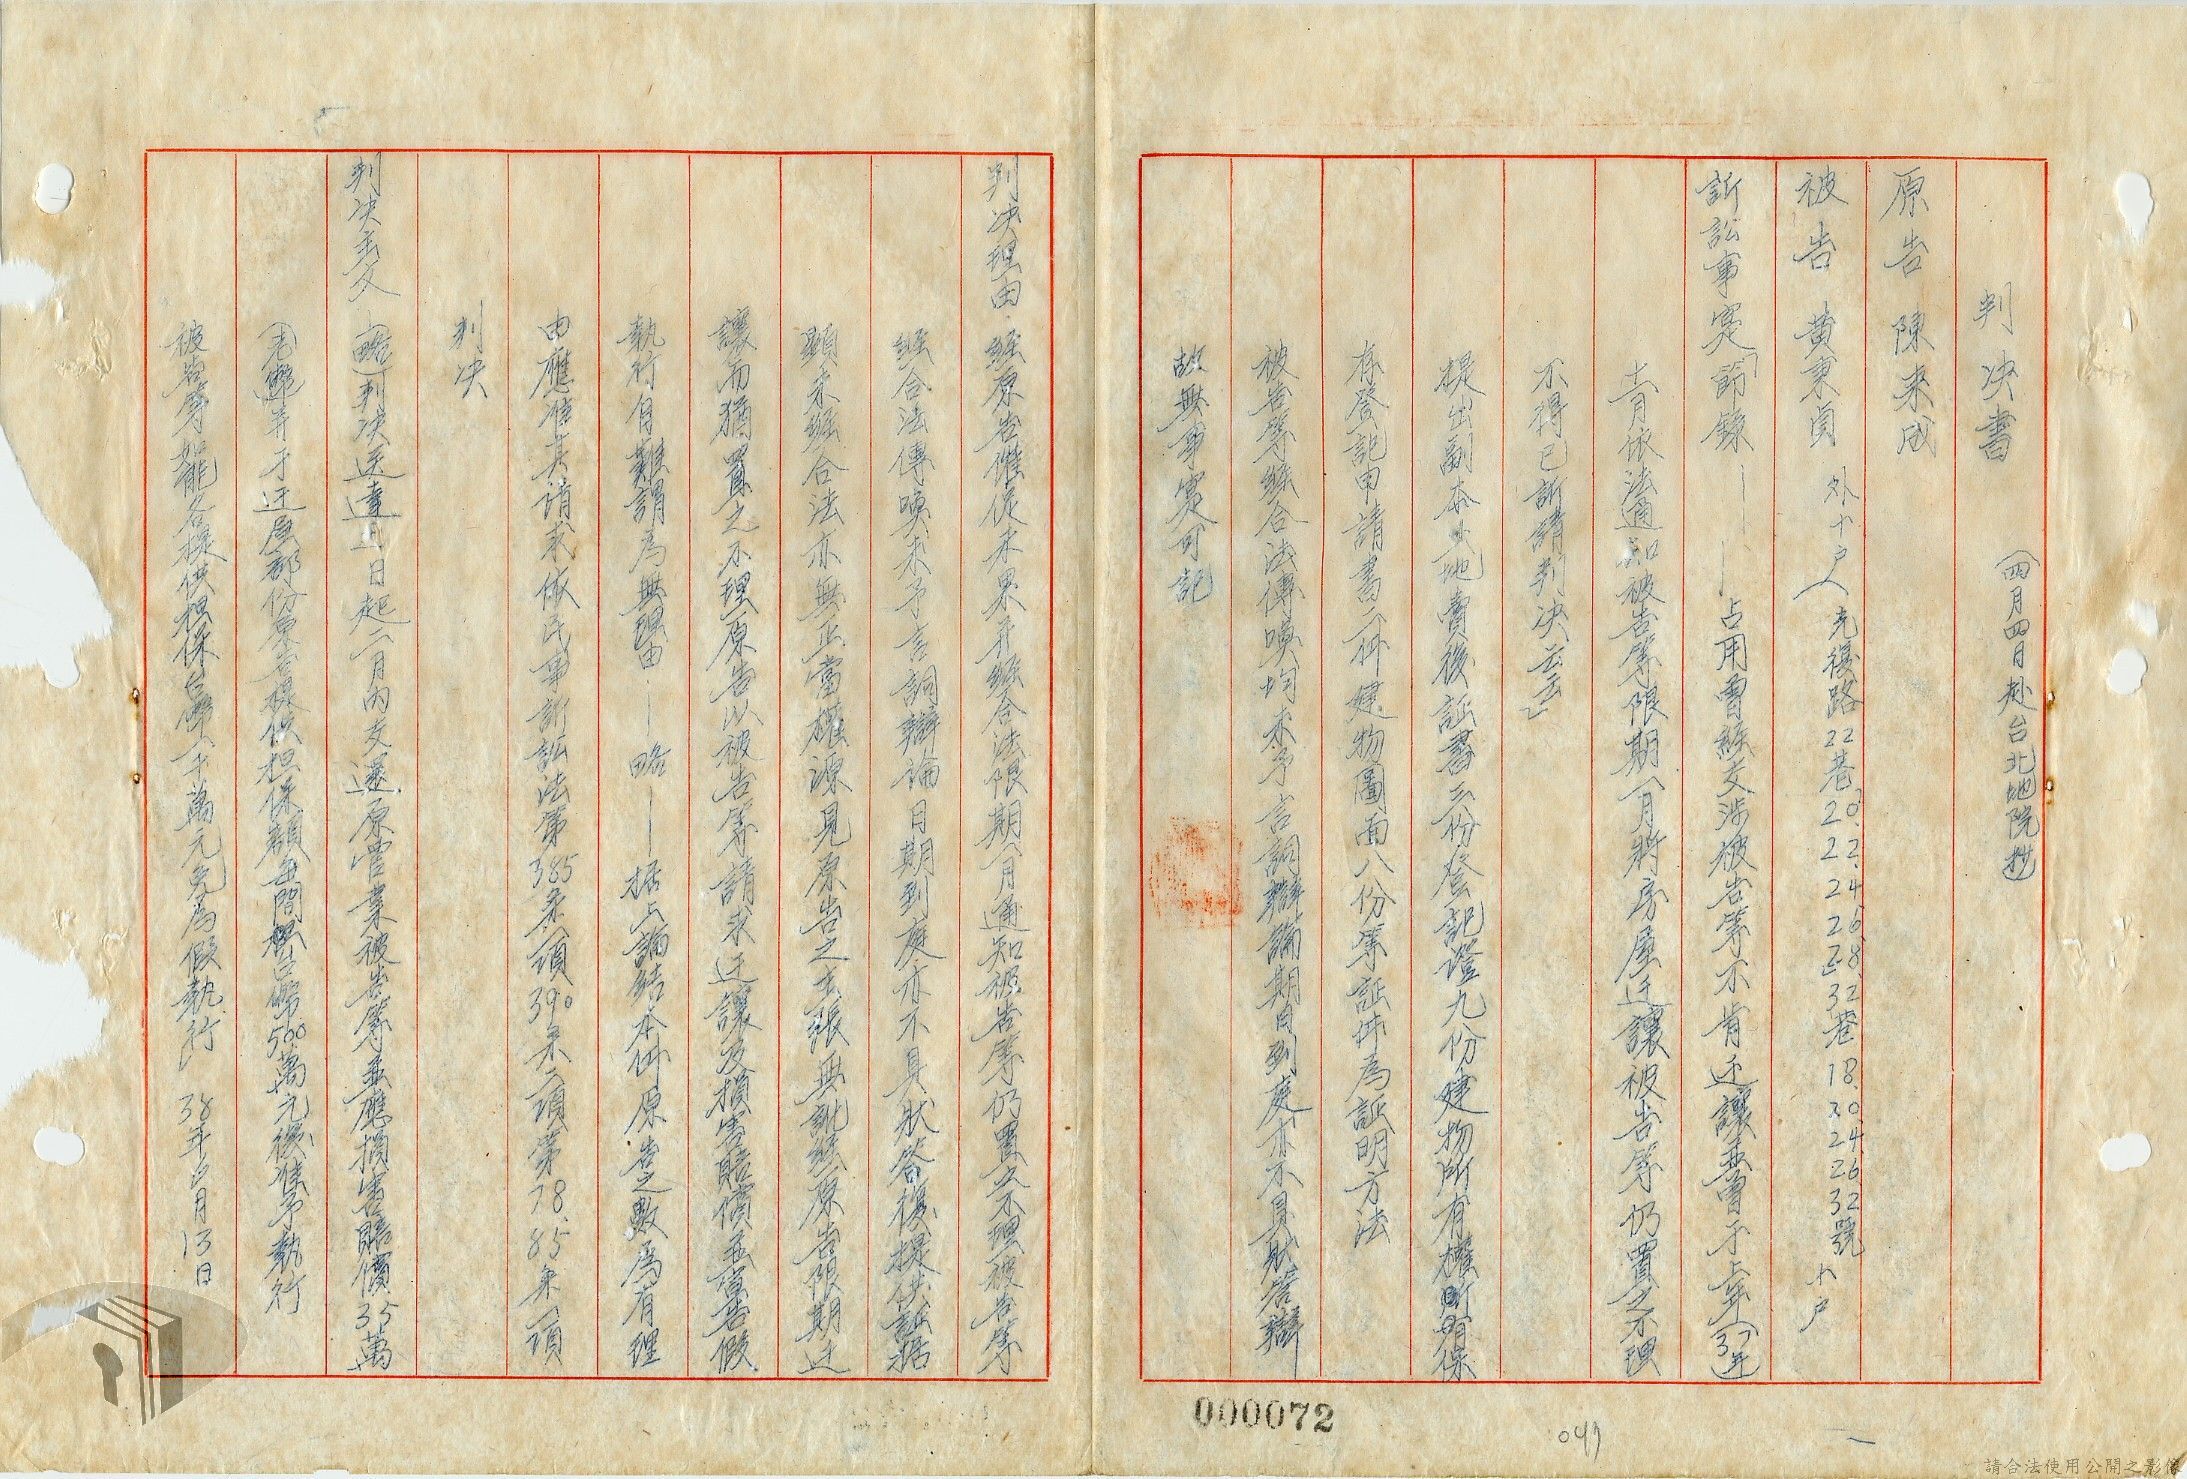 判決書 (四月四日赴台北地院抄)
原告 陳来成
被告 黃東貞 外十戶人 光復路22巷20.22.24.26.28.32巷18.20.24.26.32號十戶
訴訟事寔「節錄————占用曾經交涉被告等不肯迁讓並曾于上年(37年)
十一月依法通知被告等限期一月將房屋迁讓被告等仍置之不理
不得已訴請判決云云」
提出副本土地賣後証書二份登記證九份建物所有權所有保
存登記申請書一件建物圖面八份等証件為証明方法
被告等經合法傳喚均未予言詞辯論期日到庭亦不具狀答辯
故無事寔可記
判決理由.經原告催促未果并經合法限期一月通知被告等仍置之不理被告等
經合法傳喚未予言詞辯論日期到庭亦不具狀答復提供証据
顯未經合法亦無正當權源見原告之主張無訛經原告限期迁
讓而猶置之不理原告以被告等請求迁讓及損害賠償並宣告假
執行自難謂為無理由——略——据上論結本件原告之數為有理
由應准其請求依民事訴訟法第385条一項390条二項第78.85条一項
判決
判決主文 (略)判決送達之日起二月內交還原管業被告等並應損害賠償35萬
元鄭并于迁屋部份原告提供担保額每間台幣500萬元後准予執行
被告等能各提供担保台幣一千萬元免為假執行 38年 月13日
000072
請合法使用公開之影像